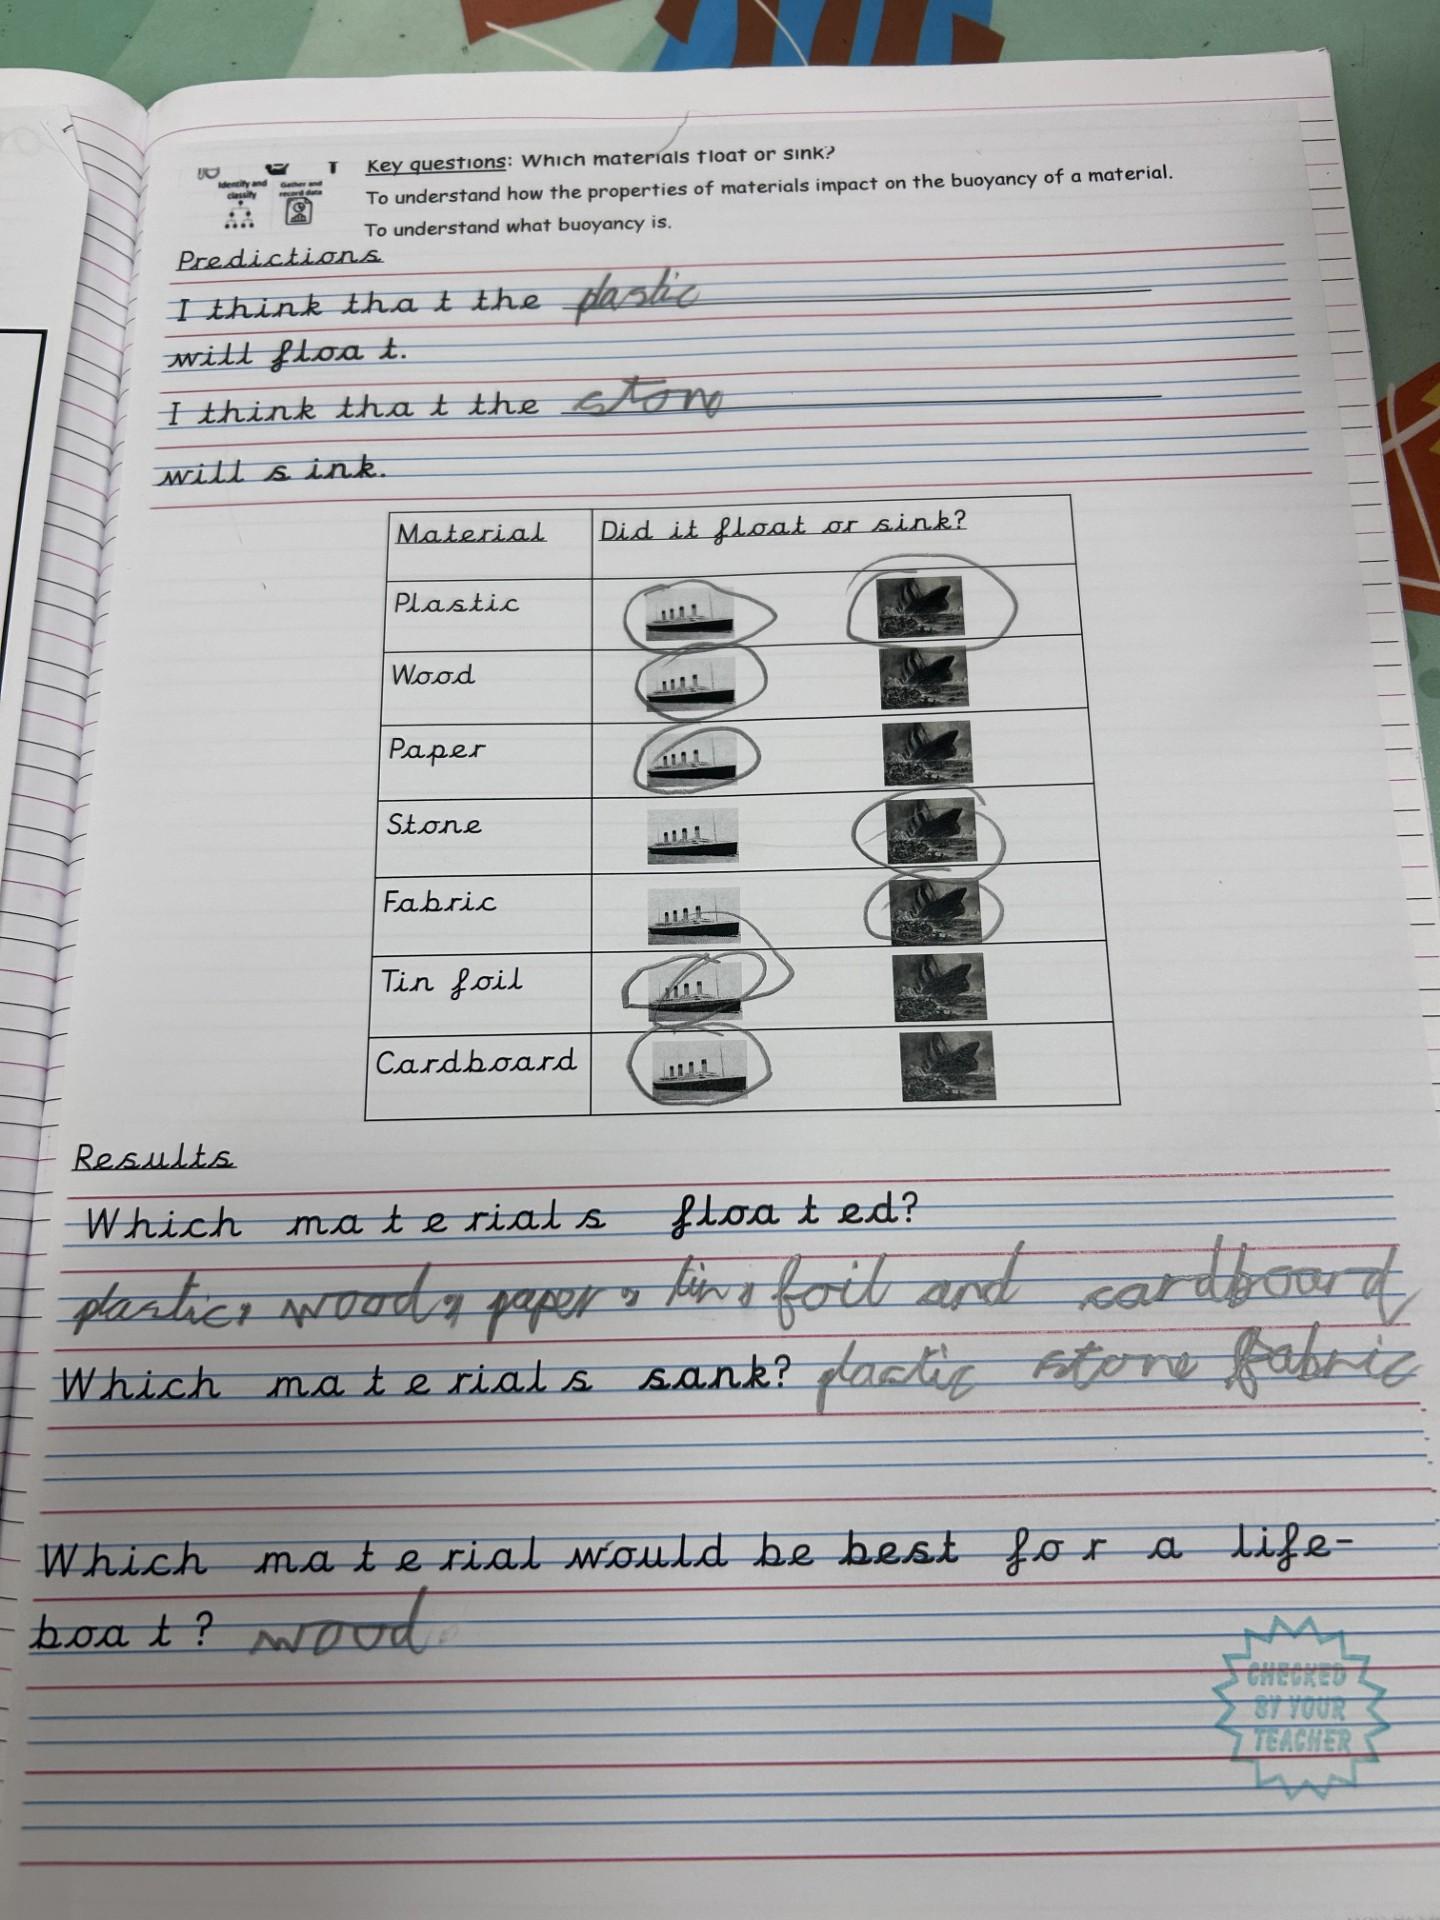 Identify and classify
Gather and record data
Key questions: Which materials float or sink?
To understand how the properties of materials impact on the buoyancy of a material.
To understand what buoyancy is.
Predictions
I think that the plastic
will float.
I think that the ston
will sink.
Material Did it float or sink?
Plastic
Wood
Paper
Stone
Fabric
Tin foil
Cardboard
Results
Which materials floated?
plastic, wood, paper, tin, foil and cardboard
Which materials sank? plastic stone fabric
Which material would be best for a life-
boat? wood
CHECKED
BY YOUR
TEACHER